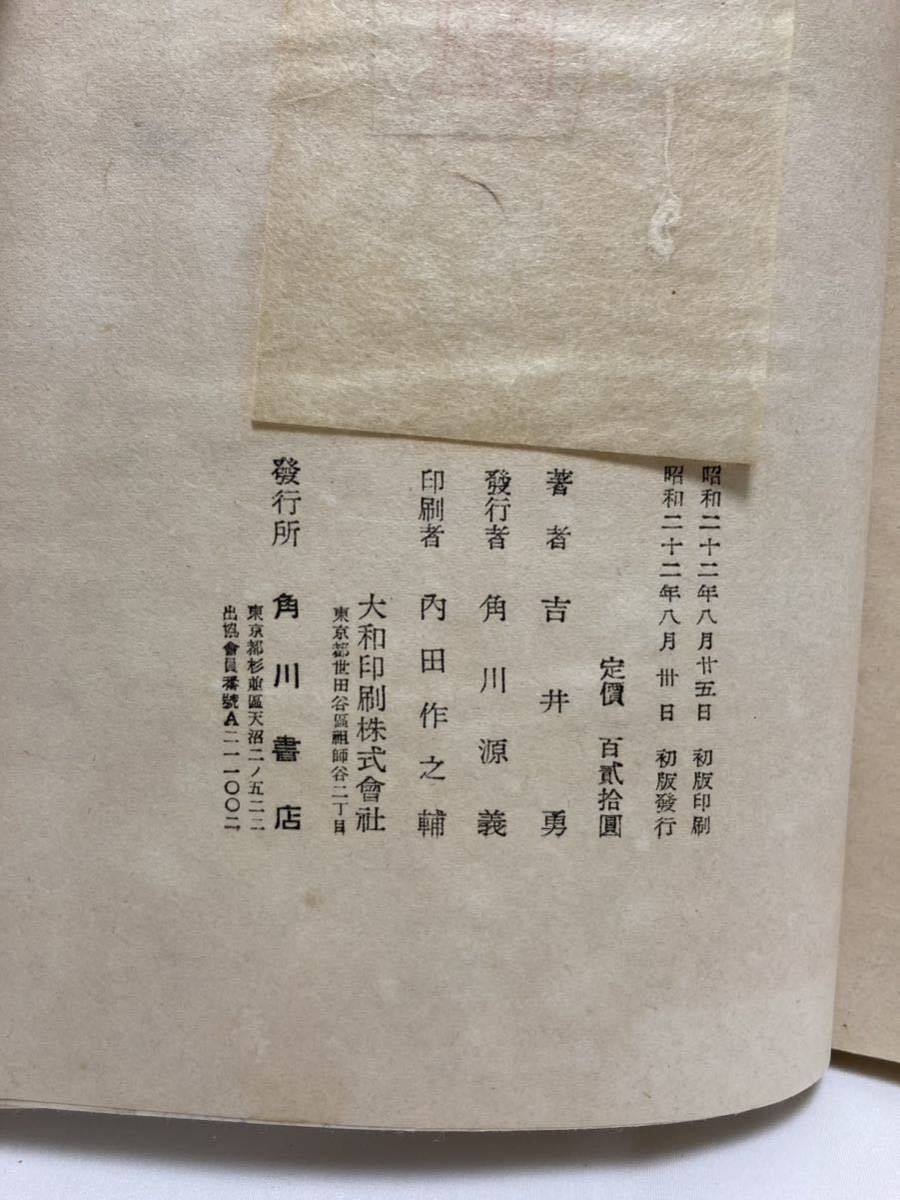 昭和二十二年八月廿五日 初版印刷
昭和二十二年八月卅日 初版發行
定價 百貳拾圓
著者 吉井勇
發行者 角川源義
印刷者 內田作之輔
大和印刷株式會社
東京都世田谷區祖師谷二丁目
發行所 角川書店
東京都杉並區天沼二ノ五二二
出協會員番號A二一一〇〇二